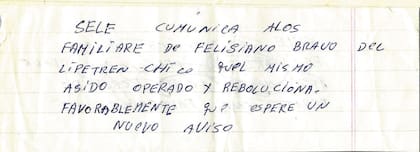 SELE CUMÚNICA ALOS
FAMILIARE DE FELISIANO BRAVO DEL
LIPETREN CHICO QUEL MISMO
ASIDO OPERADO Y REBOLUCIONA.
FAVORABLEMENTE QUE ESPERE UN
NUEVO AVISO